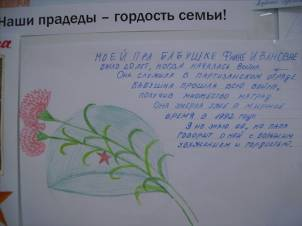 Наши прадеды – гордость семьи!
МОЕЙ ПРА БАБУШКЕ ФАИНЕ ИВАНОВНЕ
БЫЛО 20 ЛЕТ, КОГДА НАЧАЛАСЬ ВОЙНА.
ОНА СЛУЖИЛА В ПАРТИЗАНСКОМ ОТРЯДЕ
БАБУШКА ПРОШЛА ВСЮ ВОЙНУ,
ПОЛУЧИВ МНОЖЕСТВО НАГРАД.
ОНА УМЕРЛА УЖЕ В МИРНОЕ
ВРЕМЯ В 1992 ГОДУ.
Я НЕ ЗНАЮ ЕЁ, НО ПАПА
ГОВОРИТ О НЕЙ С БОЛЬШИМ
УВАЖЕНИЕМ И ГОРДОСТЬЮ.